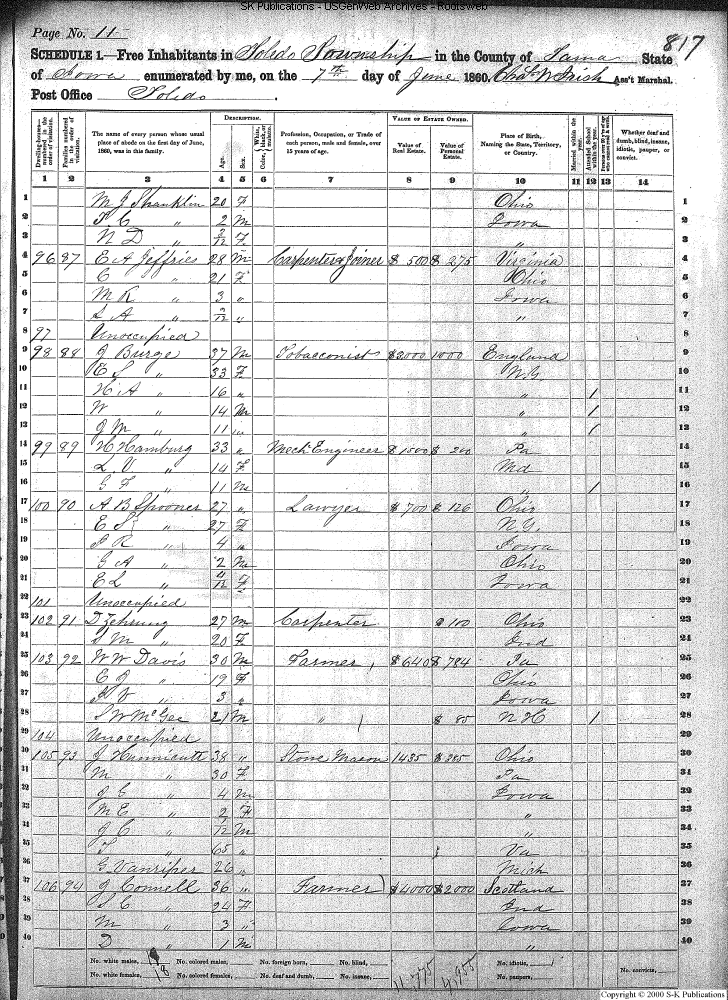 SK Publications - USGenWeb Archives - Rootsweb
Page No. 11
817
SCHEDULE 1.—Free Inhabitants in Toledo Township in the County of Tama State
of Iowa enumerated by me, on the 7th day of June 1860. Chas W Irish Ass't Marshal.
Post Office Toledo
Dwelling-houses—numbered in the order of visitation.
Families numbered in the order of visitation.
The name of every person whose usual place of abode on the first day of June, 1860, was in this family.
DESCRIPTION.
Age.
Sex.
Color, White, black, or mulatto.
Profession, Occupation, or Trade of each person, male and female, over 15 years of age.
VALUE OF ESTATE OWNED.
Value of Real Estate.
Value of Personal Estate.
Place of Birth, Naming the State, Territory, or Country.
Married within the year.
Attended School within the year.
Whether deaf and dumb, blind, insane, idiotic, pauper, or convict.
1 2 3 4 5 6 7 8 9 10 11 12 13 14
1 M J Shanklin 20 F Ohio 1
2 C " 2 M Iowa 2
3 N D " 3/12 F " 3
4 96 87 E A Jeffries 28 M Carpenter & Joiner $ 500 $ 275 Virginia 4
5 C " 21 F Ohio 5
6 M R " 3 " Iowa 6
7 S A " /12 " " 7
8 97 Unoccupied 8
9 98 88 J Burge 37 M Tobacconist $3000 1000 England 9
10 E S " 33 F N.Y. 10
11 H A " 16 " " 1 11
12 W " 14 M " 1 12
13 J M " 11 " " 1 13
14 99 89 H Hamburg 33 " Mech Engineer $ 1500 $ 200 Pa 14
15 L V " 14 F Md 15
16 G F " 11 M " 1 16
17 100 90 A B Spooner 27 " Lawyer $ 700 $ 126 Ohio 17
18 E S " 27 F N.Y. 18
19 R " 4 " Iowa 19
20 G A " 2 M Ohio 20
21 E L " /12 F Iowa 21
22 101 Unoccupied 22
23 102 91 D Zehrung 27 M Carpenter $ 100 Ohio 23
24 S M " 20 F Ind 24
25 103 92 W W Davis 30 M Farmer 1 $ 640 $ 784 Pa 25
26 E J " 19 F Ohio 26
27 V " 3 " Iowa 27
28 S W McGee 21 M " 1 $ 85 N H 1 28
29 104 Unoccupied 29
30 105 93 J Hunnicutt 38 " Stone Mason 1435 $ 285 Ohio 30
31 M " 30 F Pa 31
32 J G " 4 M Iowa 32
33 M E " 2 F " 33
34 J C " /12 M " 34
35 " 65 " Va 35
36 G Vanriper 26 " Mich 36
37 106 94 J Connell 36 " Farmer $ 4000 $ 2000 Scotland 37
38 S C " 24 F Ind 38
39 M " 3 " Iowa 39
40 D " 1 M " 40
No. white males, 19 No. colored males, No. foreign born, No. blind, No. idiotic, No. convicts,
No. white females, 18 No. colored females, No. deaf and dumb, No. insane, No. paupers,
Copyright © 2000 S-K Publications